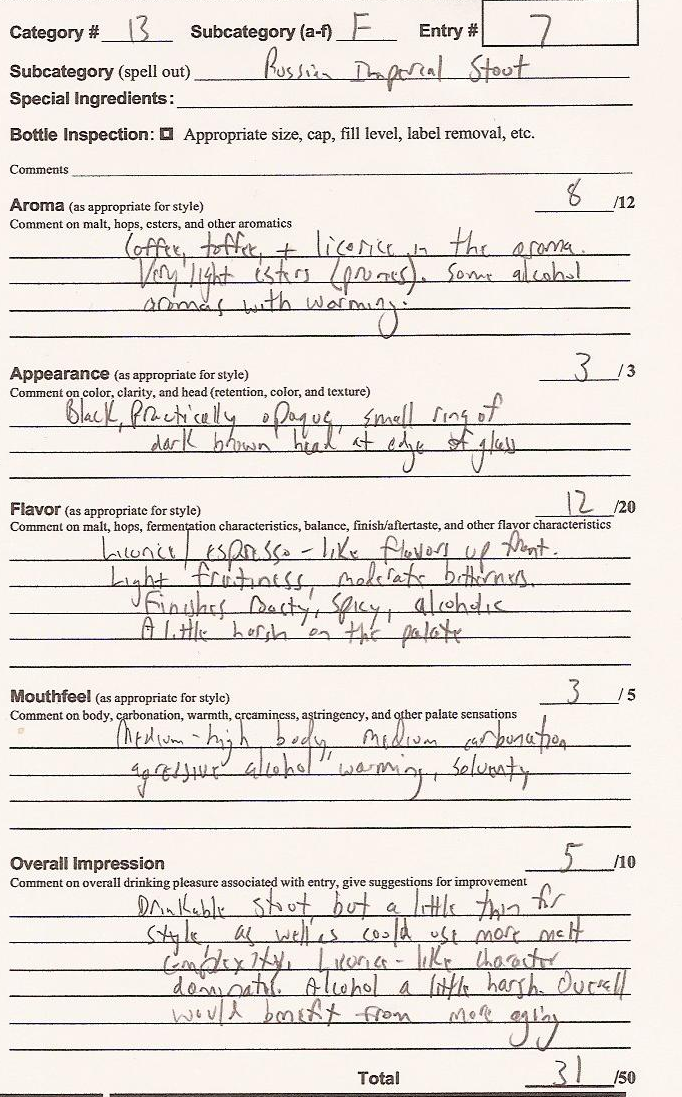 Category # 13 Subcategory (a-f) F Entry # 7
Subcategory (spell out) Russian Imperial Stout
Special Ingredients:
Bottle Inspection: Appropriate size, cap, fill level, label removal, etc.
Comments
Aroma (as appropriate for style) 8 /12
Comment on malt, hops, esters, and other aromatics
Coffee, toffee, + licorice in the aroma.
Very light esters (prunes). Some alcohol
aromas with warming.
Appearance (as appropriate for style) 3 / 3
Comment on color, clarity, and head (retention, color, and texture)
Black, Practically opaque, small ring of
dark brown head at edge of glass
Flavor (as appropriate for style) 12 /20
Comment on malt, hops, fermentation characteristics, balance, finish/aftertaste, and other flavor characteristics
Licorice/espresso-like flavors up front.
Light fruitiness, moderate bitterness.
Finishes Roasty, Spicy, alcoholic
A little harsh on the palate
Mouthfeel (as appropriate for style) 3 / 5
Comment on body, carbonation, warmth, creaminess, astringency, and other palate sensations
Medium-high body, medium carbonation
agressive alcohol warming, solventy
Overall Impression 5 /10
Comment on overall drinking pleasure associated with entry, give suggestions for improvement
Drinkable stout, but a little thin for
style, as well as could use more malt
complexity. Licorice-like character
dominates. Alcohol a little harsh. Overall
would benefit from more aging
Total 31 /50